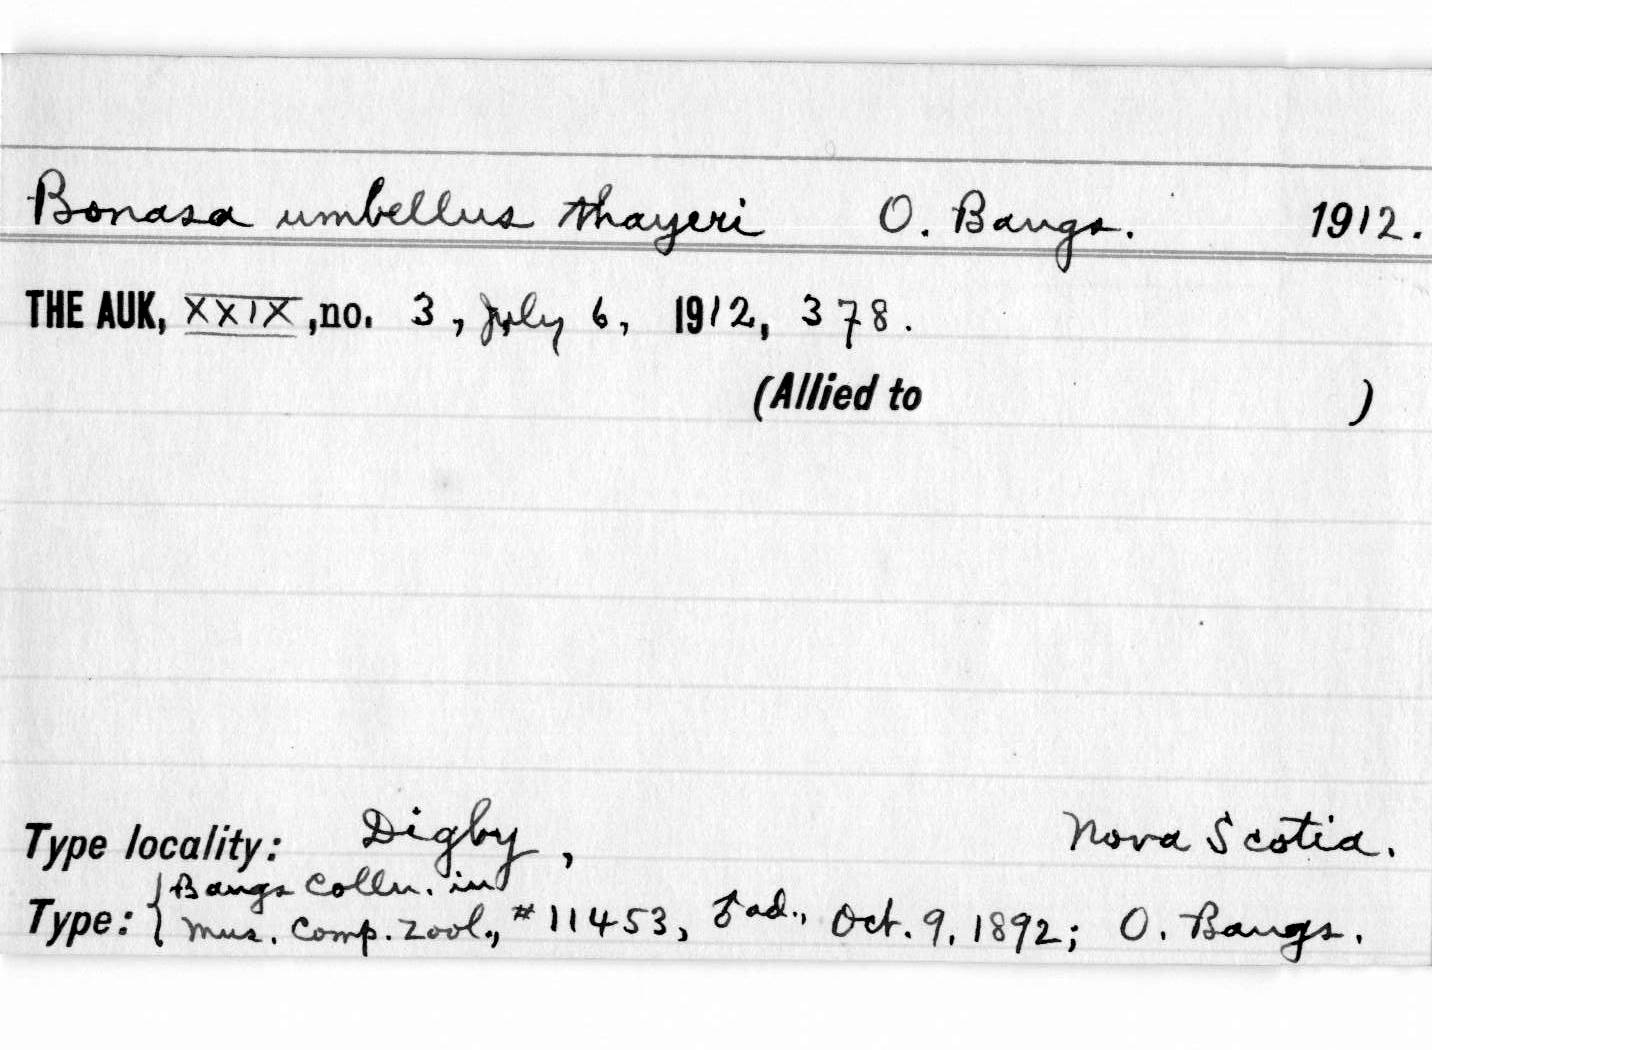 Bonasa umbellus thayeri O. Bangs. 1912.
THE AUK, XXIX, no. 3, July 6, 1912, 378.
(Allied to )
Type locality: Digby, Nova Scotia.
Bangs Colln. in
Type: { Mus. Comp. Zool., #11453, ♂ ad., Oct. 9, 1892; O. Bangs.